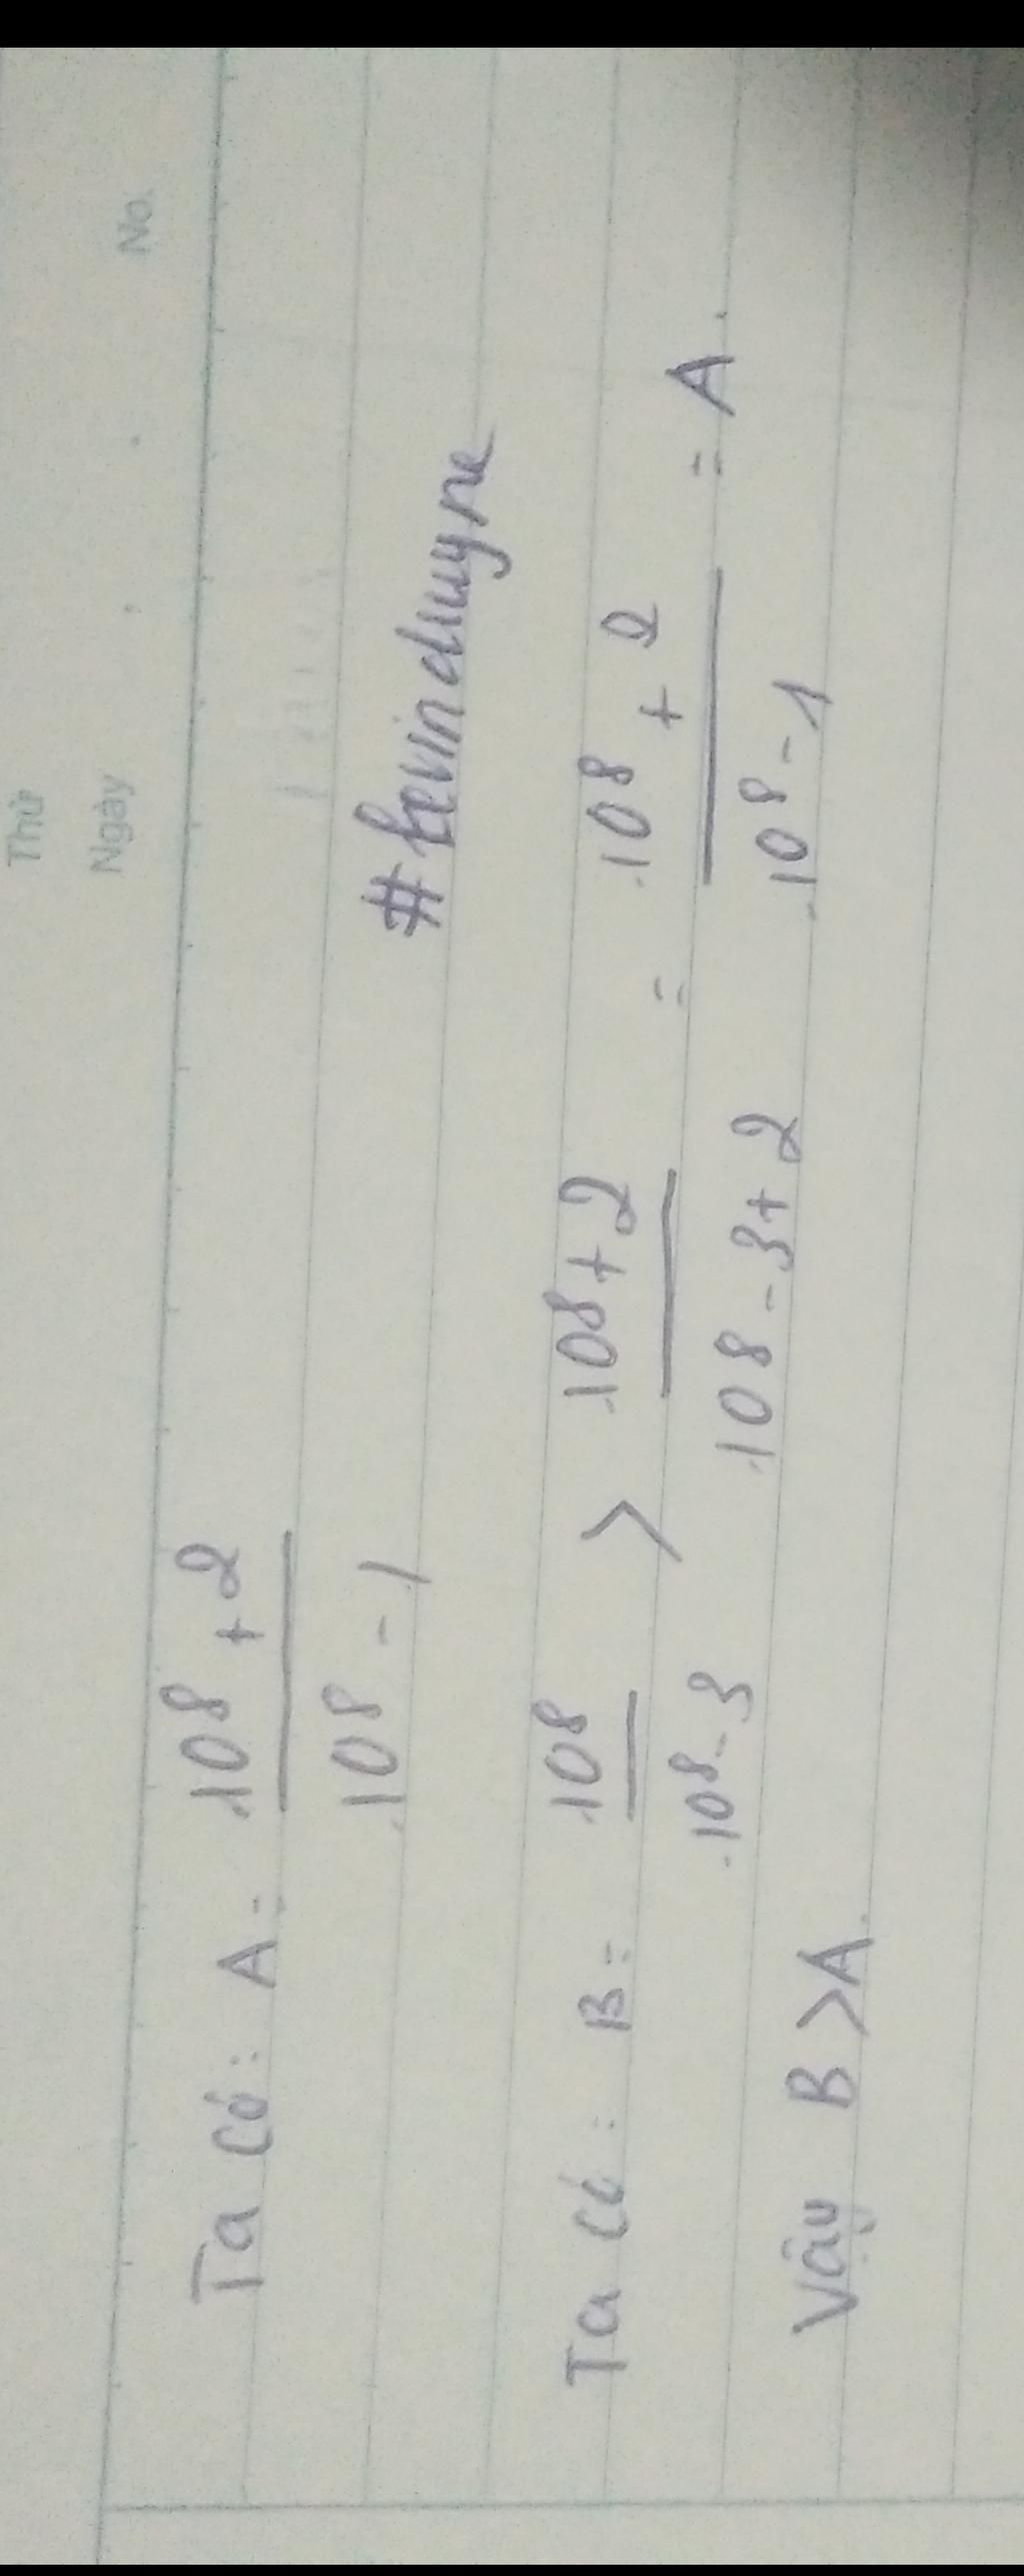 Thứ
Ngày No.
Ta có: A = 10⁸ + 2 / 10⁸ - 1
#kevinduyne
Ta có: B = 10⁸ / 10⁸ - 3 > 10⁸ + 2 / 10⁸ - 3 + 2 = 10⁸ + 2 / 10⁸ - 1 = A.
Vậy B > A.